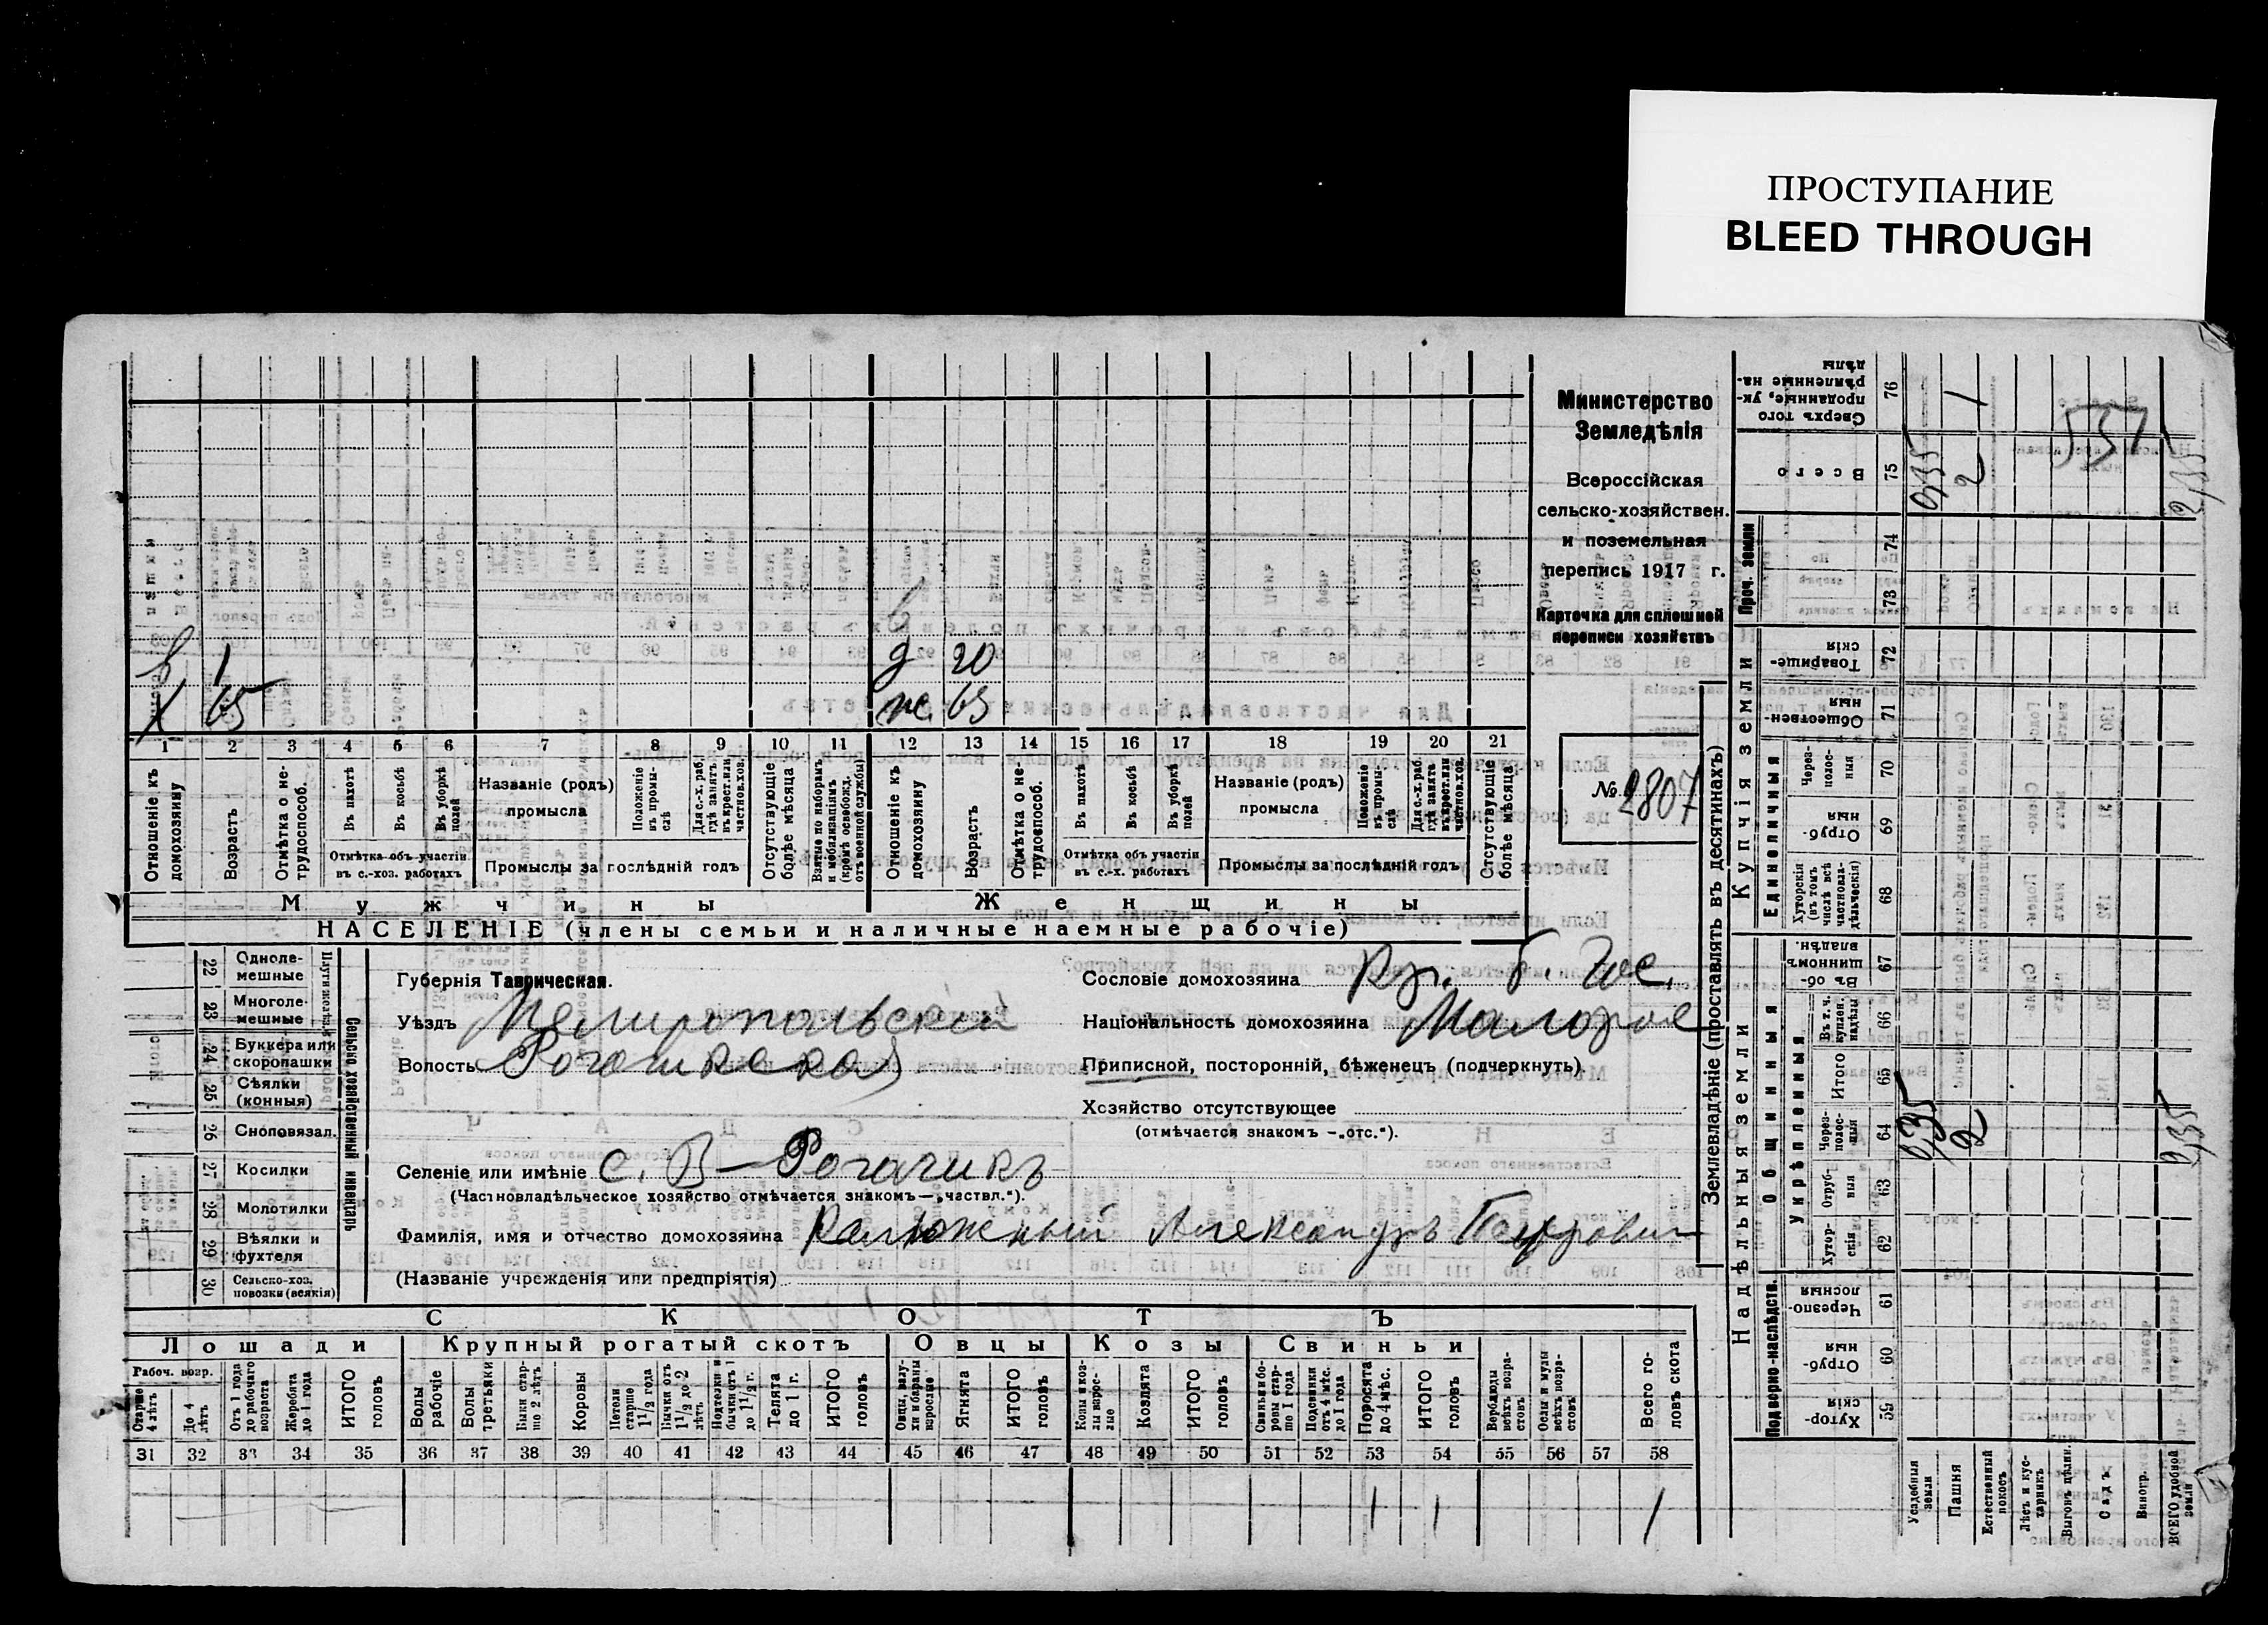 ПРОСТУПАНИЕ
BLEED THROUGH
Министерство
Земледѣлія
Всероссійская
сельско-хозяйствен.
и поземельная
перепись 1917 г.
Карточка для сплошной
переписи хозяйствъ
№ 2807
1 65 20 ж. 65
1 2 3 4 5 6 7 8 9 10 11 12 13 14 15 16 17 18 19 20 21
Отношеніе къ домохозяину
Возрастъ
Отмѣтка о не-трудоспособ.
Въ пахотѣ
Въ косьбѣ
Въ уборкѣ полей
Отмѣтка объ участіи въ с.-хоз. работахъ
Названіе (родъ) промысла
Положеніе въ промы-слѣ
Для с.-х. раб. гдѣ занятъ: въ крест. или частнов. хоз.
Промыслы за послѣдній годъ
Отсутствующіе болѣе мѣсяца
Взятые по наборамъ и мобилизаціямъ (кромѣ освобожд. отъ военной службы)
Отношеніе къ домохозяину
Возрастъ
Отмѣтка о не-трудоспособ.
Въ пахотѣ
Въ косьбѣ
Въ уборкѣ полей
Отмѣтка объ участіи въ с.-х. работахъ
Названіе (родъ) промысла
Положеніе въ промы-слѣ
Для с.-х. раб. гдѣ занята въ крест. или частнов. хоз.
Промыслы за послѣдній годъ
Отсутствующіе болѣе мѣсяца
Мужчины Женщины
НАСЕЛЕНІЕ (члены семьи и наличные наемные рабочіе)
22 Одноле-мешные
23 Многоле-мешные
24 Буккера или скоропашки
25 Сѣялки (конныя)
26 Сноповязал.
27 Косилки
28 Молотилки
29 Вѣялки и фухтеля
30 Сельско-хоз. повозки (всякія)
Сельско хозяйственный инвентарь
Губернія Таврическая.
Уѣздъ Мелитопольскій
Волость
Селеніе или имѣніе с. В-Рогачикъ
(Частновладѣльческое хозяйство отмѣчается знакомъ — „частвл.“).
Фамилія, имя и отчество домохозяина Калюжный Александръ Петрович
(Названіе учрежденія или предпріятія)
Сословіе домохозяина кр.
Національность домохозяина Малорос
Приписной, посторонній, бѣженецъ (подчеркнуть).
Хозяйство отсутствующее
(отмѣчается знакомъ — „отс.“).
СКОТЪ
Лошади Крупный рогатый скотъ Овцы Козы Свиньи
Рабоч. возр.
Старше 4 лѣтъ
До 4 лѣтъ
Отъ 1 года до рабочаго возраста
Жеребята до 1 года
ИТОГО головъ
Волы рабочіе
Волы третьяки
Быки стар-ше 2 лѣтъ
Коровы
Нетели старше 1 1/2 года
Бычки отъ 1 1/2 до 2 лѣтъ
Подтелки и бычки отъ 1 до 1 1/2 г.
Телята до 1 г.
ИТОГО головъ
Овцы, валу-хи и бараны взрослые
Ягнята
ИТОГО головъ
Козы и коз-лы взрос-лые
Козлята
ИТОГО головъ
Свиньи и бо-ровы стар-ше 1 года
Подсвинки отъ 4 мѣс. до 1 года
Поросята до 4 мѣс.
ИТОГО головъ
Верблюды всѣхъ возра-стовъ
Ослы и мулы всѣхъ возра-стовъ
Всего го-ловъ скота
31 32 33 34 35 36 37 38 39 40 41 42 43 44 45 46 47 48 49 50 51 52 53 54 55 56 57 58
1 1 1
Землевладѣніе (проставлять въ десятинахъ)
Купчія земли
Надѣльныя земли
Сверхъ того проданные, ук-рѣпленные на-дѣлы 76
Всего 75
Проч. земли
74
73
Товарище-скія 72
Обществен-ныя 71
Единоличныя
Через-полос-ныя 70
Отруб-ныя 69
Хуторскія (въ томъ числѣ всѣ частновла-дѣльческія) 68
Общинныя
Въ об-щинномъ владѣн. 67
Укрѣпленныя
Въ т. ч. куплен. надѣлы 66
Итого 65
Через-полос-ныя 64
Отруб-ныя 63
Хутор-скія 62
Подворно-наслѣдств.
Черезпо-лосныя 61
Отруб-ныя 60
Хутор-скія 59
Усадебныя земли
Пашня
Естественный покосъ
Лѣсъ и кус-тарникъ
Выгонъ цѣлин.
Садъ
Виногр.
ВСЕГО удобной земли
2
2